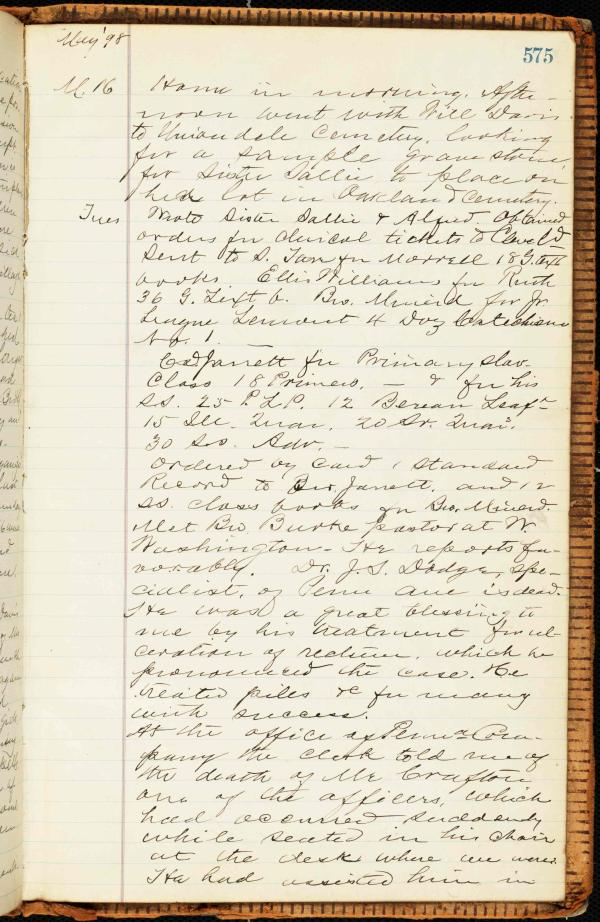 May '98
575
M. 16 Home in morning. After-
noon went with Will Davis
to Uniondale Cemetery, looking
for a sample grave stone,
for Sister Sallie to place on
her lot in Oakland Cemetery.
Tues Wrote Sister Sallie & Alfred. Obtained
orders for clerical tickets to Cleveld
Sent to S. for Morrell 18 G. Text
books. Ellis Williams for Ruth
36 G. Text b. Bro. Minerd for Jr
League Lemont 4 Doz Catechisms
No. 1. —
Jarrett for Primary Slav.
Class 18 Primers. — & for his
SS. 25 P.L.P. 12 Berean Leaf
15 Ill. Quar. 20 Sr. Quar.
30 Adv. —
Ordered by Card 1 Standard
Record to Bro. Jarrett. and 12
SS. class books for Bro. Minerd.
Met Bro. Burke pastor at W.
Washington. He reports fa-
vorably. Dr. J. S. Dodge, spe-
cialist, of Penn Ave is dead.
He was a great blessing to
me by his treatment for ul-
ceration of rectum, which he
pronounced the case. He
treated piles &c for many
with success.
At the office of Penn Com-
pany the clerk told me of
the death of Mr Crafton
one of the officers, which
had occurred suddenly
while seated in his chair
at the desk where we were.
He had assisted him in